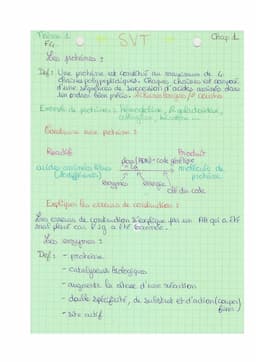 Thème 1 SVT Chap 1
Les protéines :
Def : Une protéine est constitué au maximum de 4
chaînes polypeptidiques. Chaque chaînes est composé
d'une séquence de succession d'acides aminés dans
un ordre bien précis.
Exemple de protéines : hémoglobine,
collagène, kératine ...
Construire une protéine :
Réactif Produit
acides aminés libres molécule de
(20 différents) protéine
enzymes énergie
Expliquer les erreurs de construction :
Les erreurs de construction s'explique par un AA qui a été
mal placé car l'ADN a été
Les enzymes :
Def : - protéine
- catalyseurs biologiques
- augmente la vitesse d'une réaction
- double spécificité, de substrat et d'action (couper/
- site actif